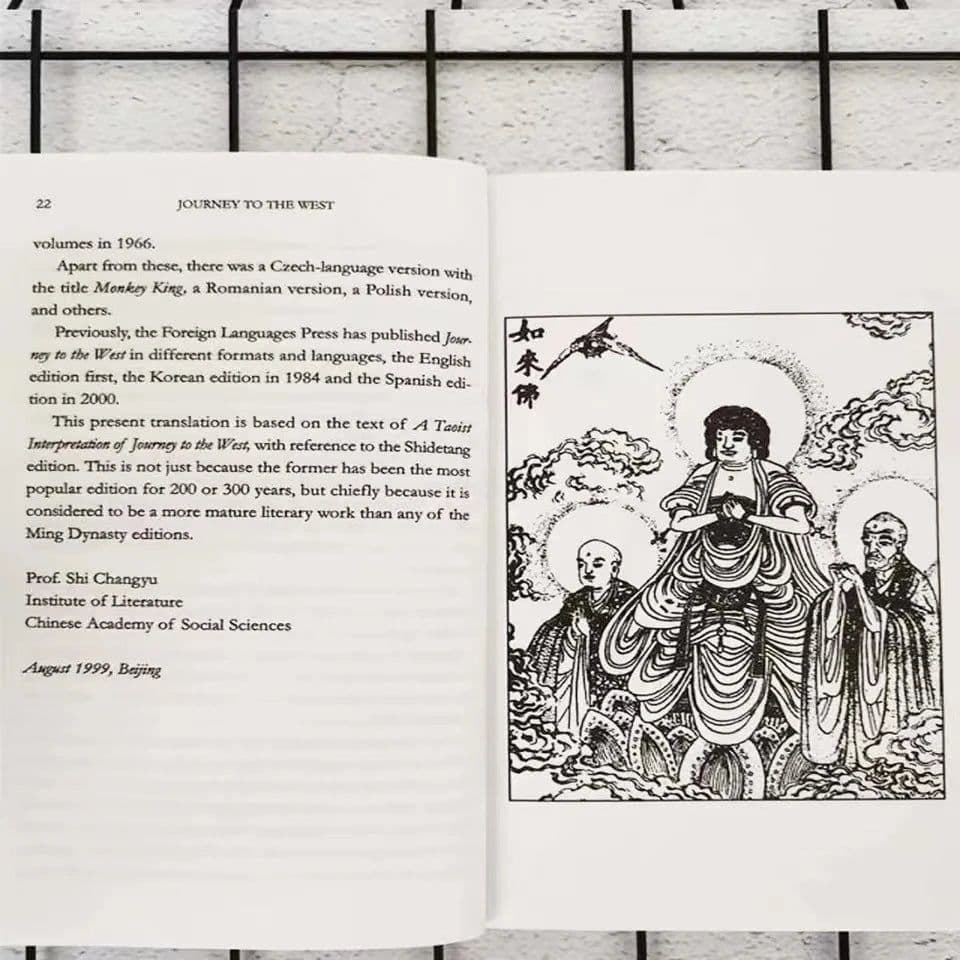 22
JOURNEY TO THE WEST
volumes in 1966.
Apart from these, there was a Czech-language version with
the title Monkey King, a Romanian version, a Polish version,
and others.
Previously, the Foreign Languages Press has published Jour-
ney to the West in different formats and languages, the English
edition first, the Korean edition in 1984 and the Spanish edi-
tion in 2000.
This present translation is based on the text of A Taoist
Interpretation of Journey to the West, with reference to the Shidetang
edition. This is not just because the former has been the most
popular edition for 200 or 300 years, but chiefly because it is
considered to be a more mature literary work than any of the
Ming Dynasty editions.
Prof. Shi Changyu
Institute of Literature
Chinese Academy of Social Sciences
August 1999, Beijing
如來佛